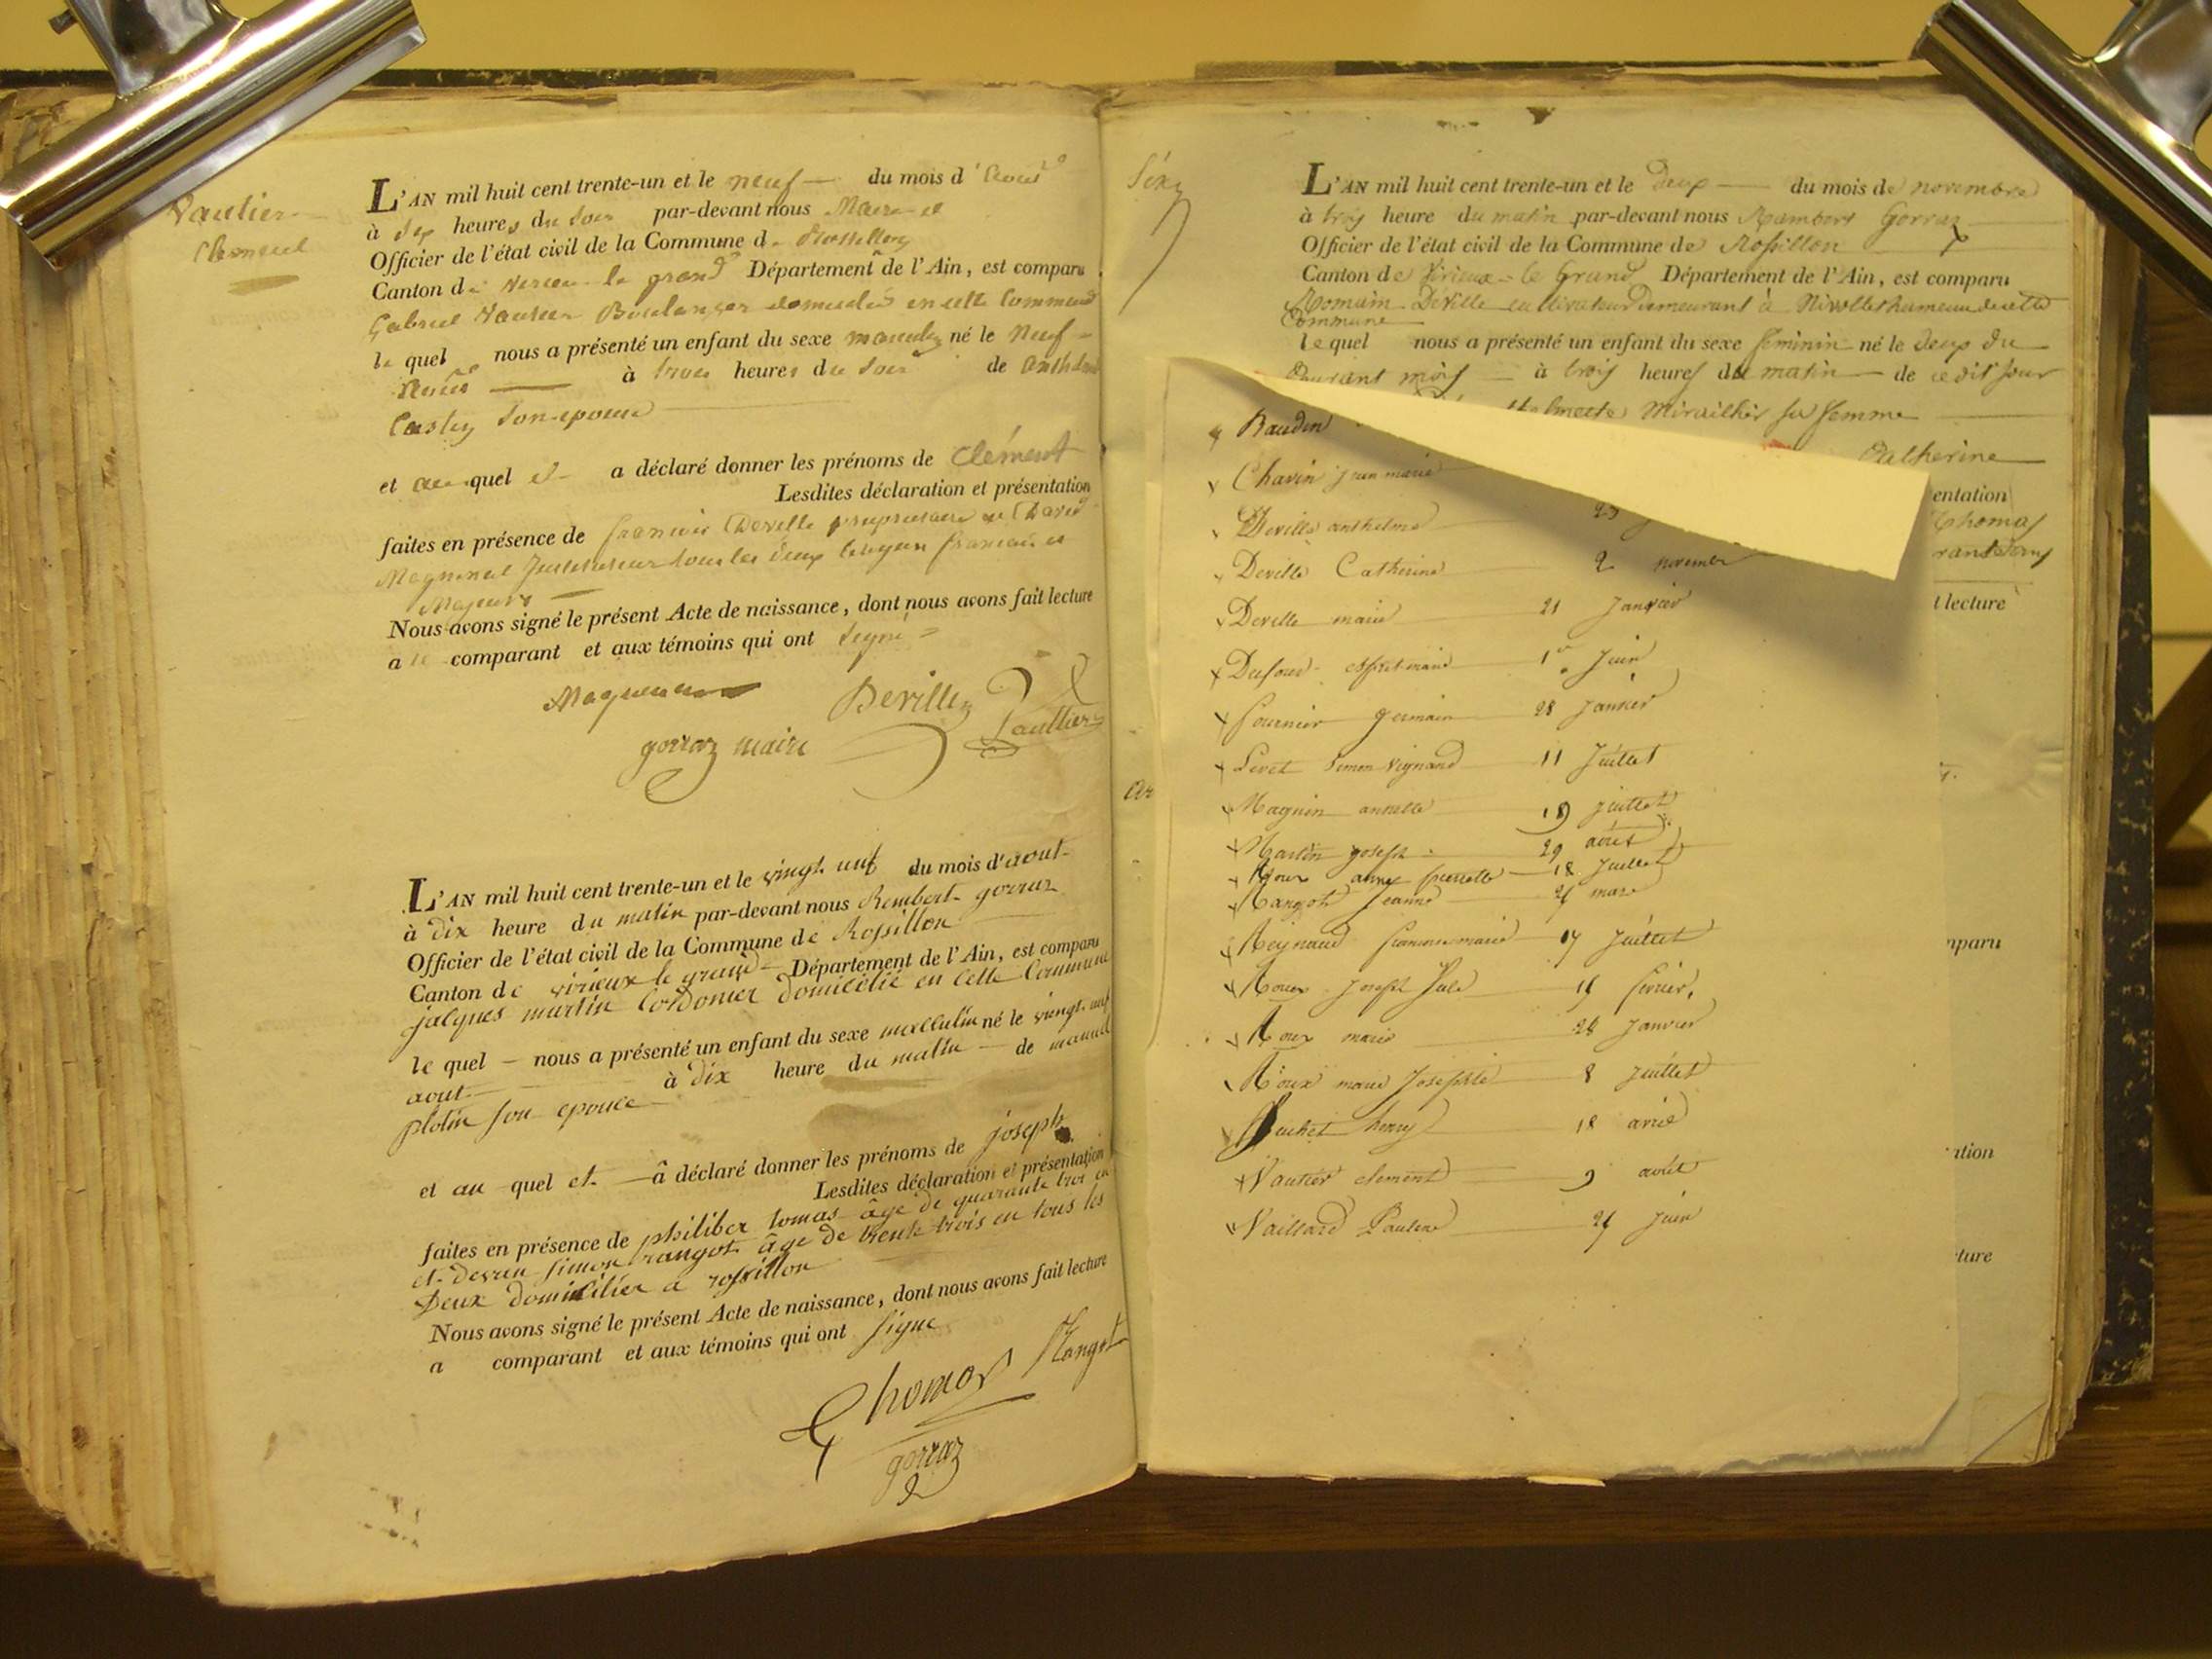 Vautier
Clement
L'AN mil huit cent trente-un et le neuf du mois d'
à heures du soir par-devant nous Maire et
Officier de l'état civil de la Commune de
Canton de le grand Département de l'Ain, est comparu
Gabriel Vautier Boulanger en cette Commune
le quel nous a présenté un enfant du sexe né le Neuf
à trois heures du soir de
Castin son epouse
et au quel il a déclaré donner les prénoms de Clément
Lesdites déclaration et présentation
faites en présence de francois Deville proprietaire
tous les deux
Majeurs
Nous avons signé le présent Acte de naissance, dont nous avons fait lecture
a comparant et aux témoins qui ont signé
Deville
gorraz maire
L'AN mil huit cent trente-un et le vingt neuf du mois d'aout
à dix heure du matin par-devant nous Rembert gorraz
Officier de l'état civil de la Commune de Rossillon
Canton de virieux le grand Département de l'Ain, est comparu
jalques martin Cordonier domicilié en cette Commune
le quel nous a présenté un enfant du sexe né le vingt neuf
aout à dix heure du matin de
son epouce
et au quel et â déclaré donner les prénoms de joseph
Lesdites déclaration et présentation
faites en présence de philiber tomas âge de quarante troi
et simon rangot âge de trente trois en tous les
Deux a rossillon
Nous avons signé le présent Acte de naissance, dont nous avons fait lecture
a comparant et aux témoins qui ont signe
Thomas Rangot
gorraz
L'AN mil huit cent trente-un et le deux du mois de novembre
à trois heure du matin par-devant nous Rambert Gorraz
Officier de l'état civil de la Commune de Rossillon
Canton de Virieux-le Grand Département de l'Ain, est comparu
Romain Déville cultivateur demeurant à hameau de cette
Commune
le quel nous a présenté un enfant du sexe féminin né le deux du
Courant mois à trois heures du matin de ce dit jour
sa femme
Catherine
entation
Thomas
t lecture
Baudin
Chavin jean marie
Deville anthelme
Deville Catherine 2 novembre
Deville marie 21 Janvier
Dufour 1er Juin
Fournier Germain 28 Janvier
11 Juillet
Magnin annette 19 juillet
Martin joseph 29 août
Roux anne pierrette 18 Juillet
Rangot Jeanne mars
Reynaud marie 17 Juillet
Roux Joseph février
Roux marie 28 Janvier
Roux marie Josephte 8 Juillet
henry 18 avril
Vautier clement 9 août
Vaillard Pauline Juin
mparu
ation
ture